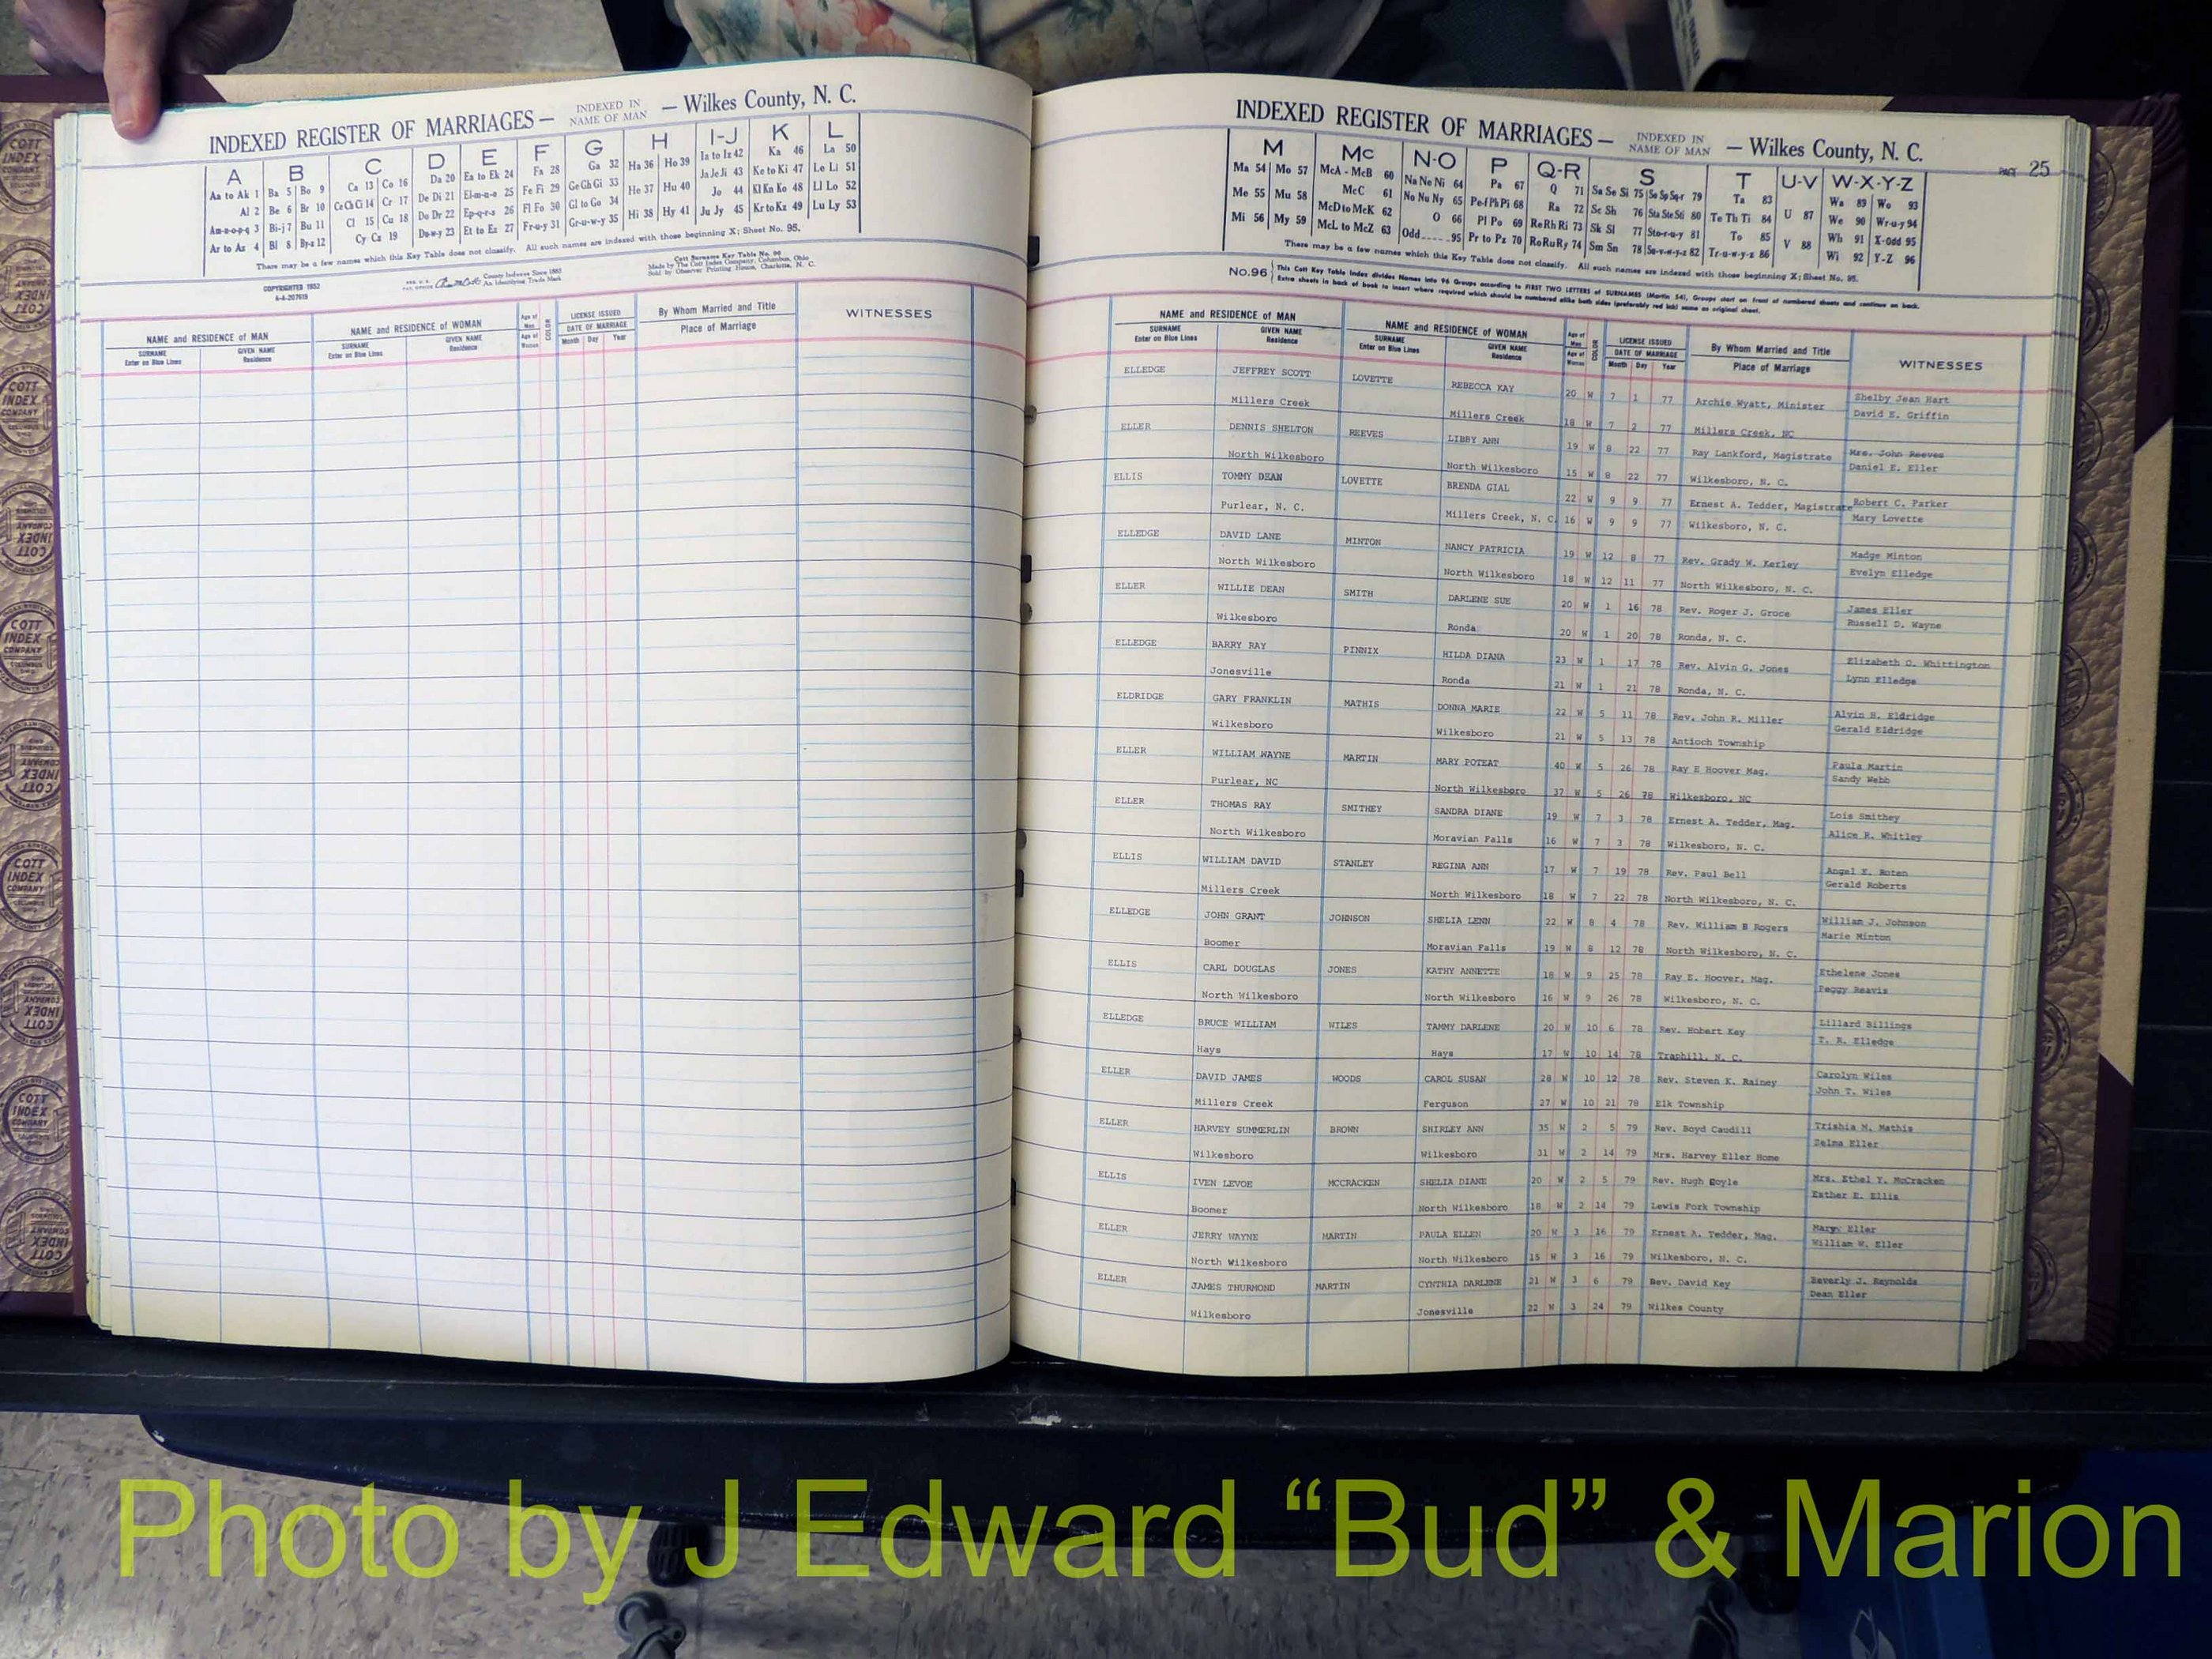 INDEXED REGISTER OF MARRIAGES — INDEXED IN NAME OF MAN — Wilkes County, N. C.
A B C D E F G H I-J K L
Aa to Ak 1 Ba 5 Bo 9 Ca 13 Co 16 Da 20 Ea to Ek 24 Fa 28 Ga 32 Ha 36 Ho 39 Ia to Iz 42 Ka 46 La 50
Al 2 Be 6 Br 10 Ce Ch Ci 14 Cr 17 De Di 21 El-m-n-o 25 Fe Fi 29 Ge Gh Gi 33 He 37 Hu 40 Ja Je Ji 43 Ke to Ki 47 Le Li 51
Am-n-o-p-q 3 Bi-j 7 Bu 11 Cl 15 Cu 18 Do Dr 22 Ep-q-r-s 26 Fl Fo 30 Gl to Go 34 Hi 38 Hy 41 Jo 44 Kl Kn Ko 48 Ll Lo 52
Ar to Az 4 Bl 8 By-z 12 Cy Cz 19 Du-w-y 23 Et to Ez 27 Fr-u-y 31 Gr-u-w-y 35 Ju Jy 45 Kr to Kz 49 Lu Ly 53
There may be a few names which this Key Table does not classify. All such names are indexed with those beginning X; Sheet No. 95.
COPYRIGHTED 1952
A-A-207619
County Indexes Since 1880
An Identifying Trade Mark
Cott Surname Key Table No. 96
Made by The Cott Index Company, Columbus, Ohio
Sold by Observer Printing House, Charlotte, N. C.
NAME and RESIDENCE of MAN NAME and RESIDENCE of WOMAN Age of Man Age of Woman COLOR LICENSE ISSUED DATE OF MARRIAGE By Whom Married and Title Place of Marriage WITNESSES
SURNAME Enter on Blue Lines GIVEN NAME Residence SURNAME Enter on Blue Lines GIVEN NAME Residence Month Day Year
INDEXED REGISTER OF MARRIAGES — INDEXED IN NAME OF MAN — Wilkes County, N. C.
PAGE 25
M Mc N-O P Q-R S T U-V W-X-Y-Z
Ma 54 Mo 57 McA - McB 60 Na Ne Ni 64 Pa 67 Q 71 Sa Se Si 75 So Sp Sq-r 79 Ta 83 Wa 89 Wo 93
Me 55 Mu 58 McC 61 No Nu Ny 65 Pe-f Ph Pi 68 Ra 72 Sc Sh 76 Sta Ste Sti 80 Te Th Ti 84 U 87 We 90 Wr-u-y 94
Mi 56 My 59 McD to McK 62 O 66 Pl Po 69 Re Rh Ri 73 Sk Sl 77 Sto-r-u-y 81 To 85 V 88 Wh 91 X-Odd 95
McL to McZ 63 Odd 95 Pr to Pz 70 Ro Ru Ry 74 Sm Sn 78 Su-v-w-y-z 82 Tr-u-w-y-z 86 Wi 92 Y-Z 96
There may be a few names which this Key Table does not classify. All such names are indexed with those beginning X; Sheet No. 95.
No.96 This Cott Key Table Index divides Names into 96 Groups according to FIRST TWO LETTERS of SURNAMES (Martin 54). Groups start on front of numbered sheets and continue on back.
Extra sheets in back of book to insert where required which should be numbered alike both sides (preferably red ink) same as original sheet.
NAME and RESIDENCE of MAN NAME and RESIDENCE of WOMAN Age of Man Age of Woman COLOR LICENSE ISSUED DATE OF MARRIAGE By Whom Married and Title Place of Marriage WITNESSES
SURNAME Enter on Blue Lines GIVEN NAME Residence SURNAME Enter on Blue Lines GIVEN NAME Residence Month Day Year
ELLEDGE JEFFREY SCOTT LOVETTE REBECCA KAY 20 W 7 1 77 Archie Wyatt, Minister Shelby Jean Hart
Millers Creek Millers Creek 18 W 7 2 77 Millers Creek, NC David E. Griffin
ELLER DENNIS SHELTON REEVES LIBBY ANN 19 W 8 22 77 Ray Lankford, Magistrate Mrs. John Reeves
North Wilkesboro North Wilkesboro 15 W 8 22 77 Wilkesboro, N. C. Daniel E. Eller
ELLIS TOMMY DEAN LOVETTE BRENDA GIAL 22 W 9 9 77 Ernest A. Tedder, Magistrate Robert C. Parker
Purlear, N. C. Millers Creek, N. C. 16 W 9 9 77 Wilkesboro, N. C. Mary Lovette
ELLEDGE DAVID LANE MINTON NANCY PATRICIA 19 W 12 8 77 Rev. Grady W. Kerley Madge Minton
North Wilkesboro North Wilkesboro 18 W 12 11 77 North Wilkesboro, N. C. Evelyn Elledge
ELLER WILLIE DEAN SMITH DARLENE SUE 20 W 1 16 78 Rev. Roger J. Groce James Eller
Wilkesboro Ronda 20 W 1 20 78 Ronda, N. C. Russell D. Wayne
ELLEDGE BARRY RAY PINNIX HILDA DIANA 23 W 1 17 78 Rev. Alvin G. Jones Elizabeth O. Whittington
Jonesville Ronda 21 W 1 21 78 Ronda, N. C. Lynn Elledge
ELDRIDGE GARY FRANKLIN MATHIS DONNA MARIE 22 W 5 11 78 Rev. John R. Miller Alvin H. Eldridge
Wilkesboro Wilkesboro 21 W 5 13 78 Antioch Township Gerald Eldridge
ELLER WILLIAM WAYNE MARTIN MARY POTEAT 40 W 5 26 78 Ray E Hoover Mag. Paula Martin
Purlear, NC North Wilkesboro 37 W 5 26 78 Wilkesboro, NC Sandy Webb
ELLER THOMAS RAY SMITHEY SANDRA DIANE 19 W 7 3 78 Ernest A. Tedder, Mag. Lois Smithey
North Wilkesboro Moravian Falls 16 W 7 3 78 Wilkesboro, N. C. Alice R. Whitley
ELLIS WILLIAM DAVID STANLEY REGINA ANN 17 W 7 19 78 Rev. Paul Bell Angel E. Roten
Millers Creek North Wilkesboro 18 W 7 22 78 North Wilkesboro, N. C. Gerald Roberts
ELLEDGE JOHN GRANT JOHNSON SHELIA LENN 22 W 8 4 78 Rev. William B Rogers William J. Johnson
Boomer Moravian Falls 19 W 8 12 78 North Wilkesboro, N. C. Marie Minton
ELLIS CARL DOUGLAS JONES KATHY ANNETTE 18 W 9 25 78 Ray E. Hoover, Mag. Ethelene Jones
North Wilkesboro North Wilkesboro 16 W 9 26 78 Wilkesboro, N. C. Peggy Reavis
ELLEDGE BRUCE WILLIAM WILES TAMMY DARLENE 20 W 10 6 78 Rev. Hobert Key Lillard Billings
Hays Hays 17 W 10 14 78 Traphill, N. C. T. R. Elledge
ELLER DAVID JAMES WOODS CAROL SUSAN 28 W 10 12 78 Rev. Steven K. Rainey Carolyn Wiles
Millers Creek Ferguson 27 W 10 21 78 Elk Township John T. Wiles
ELLER HARVEY SUMMERLIN BROWN SHIRLEY ANN 35 W 2 5 79 Rev. Boyd Caudill Trishia M. Mathis
Wilkesboro Wilkesboro 31 W 2 14 79 Mrs. Harvey Eller Home Zelma Eller
ELLIS IVEN LEVOE MCCRACKEN SHELIA DIANE 20 W 2 5 79 Rev. Hugh Boyle Mrs. Ethel Y. McCracken
Boomer North Wilkesboro 18 W 2 14 79 Lewis Fork Township Esther E. Ellis
ELLER JERRY WAYNE MARTIN PAULA ELLEN 20 W 3 16 79 Ernest A. Tedder, Mag. Mary Eller
North Wilkesboro North Wilkesboro 15 W 3 16 79 Wilkesboro, N. C. William W. Eller
ELLER JAMES THURMOND MARTIN CYNTHIA DARLENE 21 W 3 6 79 Rev. David Key Beverly J. Reynolds
Wilkesboro Jonesville 22 W 3 24 79 Wilkes County Dean Eller
COTT INDEX COMPANY
Photo by J Edward “Bud” & Marion